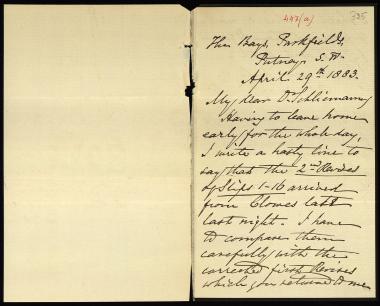 447(a)
325
The Bays, Parkfields,
Putney, S.W.
April 29th 1883.
My dear Dr Schliemann,
Having to leave home
early for the whole day,
I write a hasty line to
say that the 2nd Revises
of Slips 1-16 arrived
from Clowes last
last night. I have
to compare them
carefully with the
corrected first Revises
which you returned to me